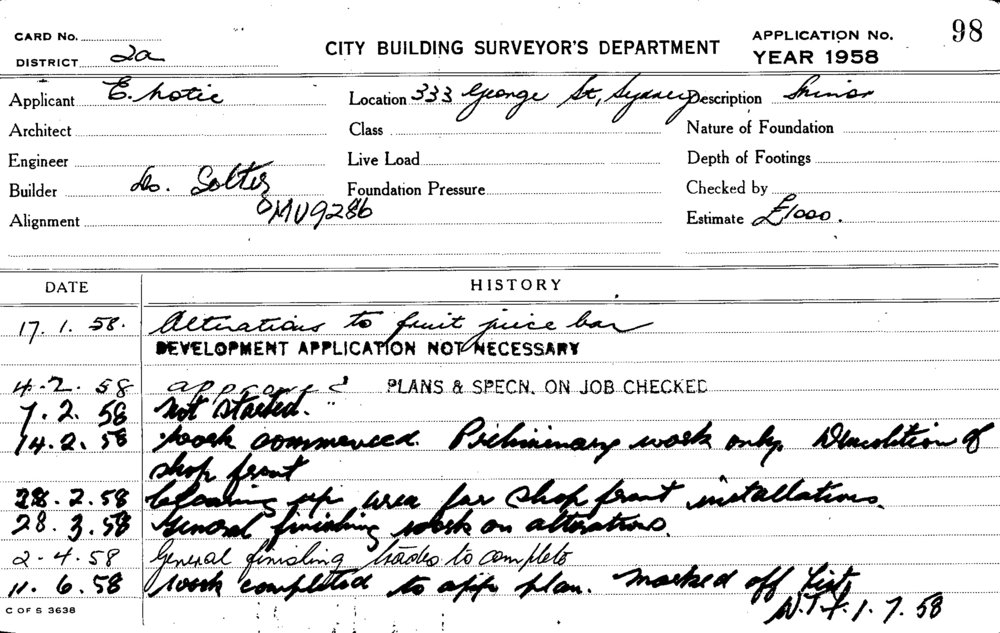 CARD No.
DISTRICT 2a
CITY BUILDING SURVEYOR'S DEPARTMENT
APPLICATION No. 98
YEAR 1958
Applicant E. Location 333 George St, Sydney Description Minor
Architect Class Nature of Foundation
Engineer Live Load Depth of Footings
Builder Foundation Pressure Checked by
Alignment MU9286 Estimate £1000.
DATE HISTORY
17. 1. 58. Alterations to fruit juice bar
DEVELOPMENT APPLICATION NOT NECESSARY
4. 2. 58 approved PLANS & SPECN. ON JOB CHECKED
7. 2. 58 Not started.
14. 2. 58 Work commenced. Preliminary work only. Demolition of
shop front
28. 2. 58 Cleaning up area for shop front installations.
28. 3. 58 General finishing work on alterations.
2-4.58 General finishing trades to complete
11. 6. 58 Work completed to app plan. Marked off list
1. 7. 58
C OF S 3638